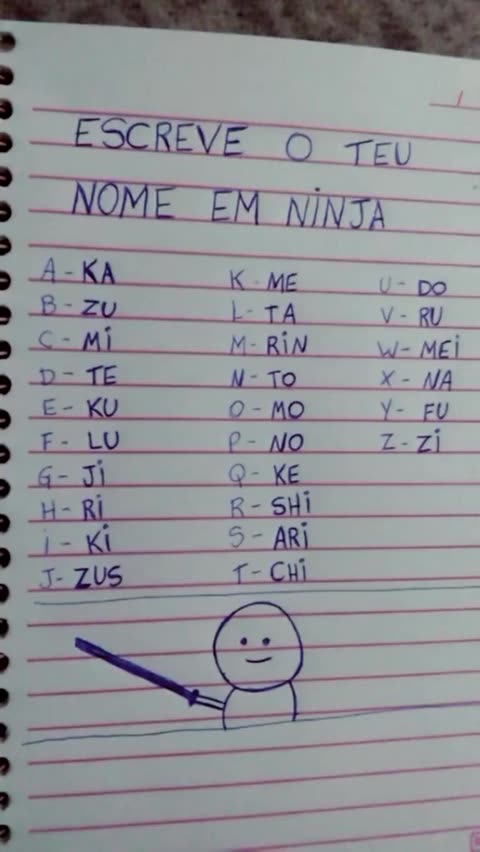 ESCREVE O TEU
NOME EM NINJA
A - KA
B - ZU
C - Mi
D - TE
E - KU
F - LU
G - Ji
H - Ri
i - Ki
J - ZUS
K - ME
L - TA
M - RiN
N - TO
O - MO
P - NO
Q - KE
R - SHi
S - ARi
T - CHi
U - DO
V - RU
W - MEi
X - NA
Y - FU
Z - Zi